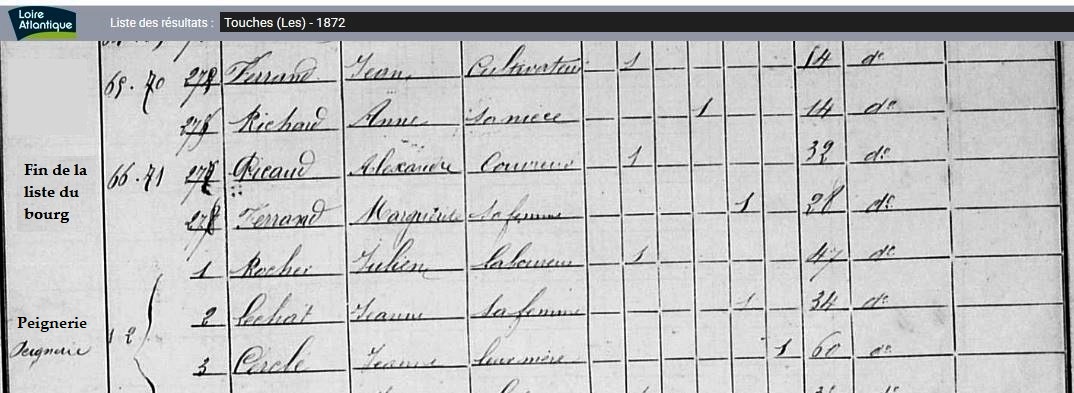 Loire Atlantique
Liste des résultats : Touches (Les) - 1872
69. 70 Ferrand Jean Cultivateur 1 14 do
Richard Anne Sa nièce 1 14 do
Fin de la liste du bourg
66. 71 Ricaud Alexandre Couvreur 1 32 do
Ferrand Marguerite Sa femme 1 28 do
1 Rocher Julien laboureur 1 47 do
Peignerie
Peignerie 1 2
2 Lechat Jeanne Sa femme 1 34 do
3 Cercle Jeanne leur mère 1 60 do